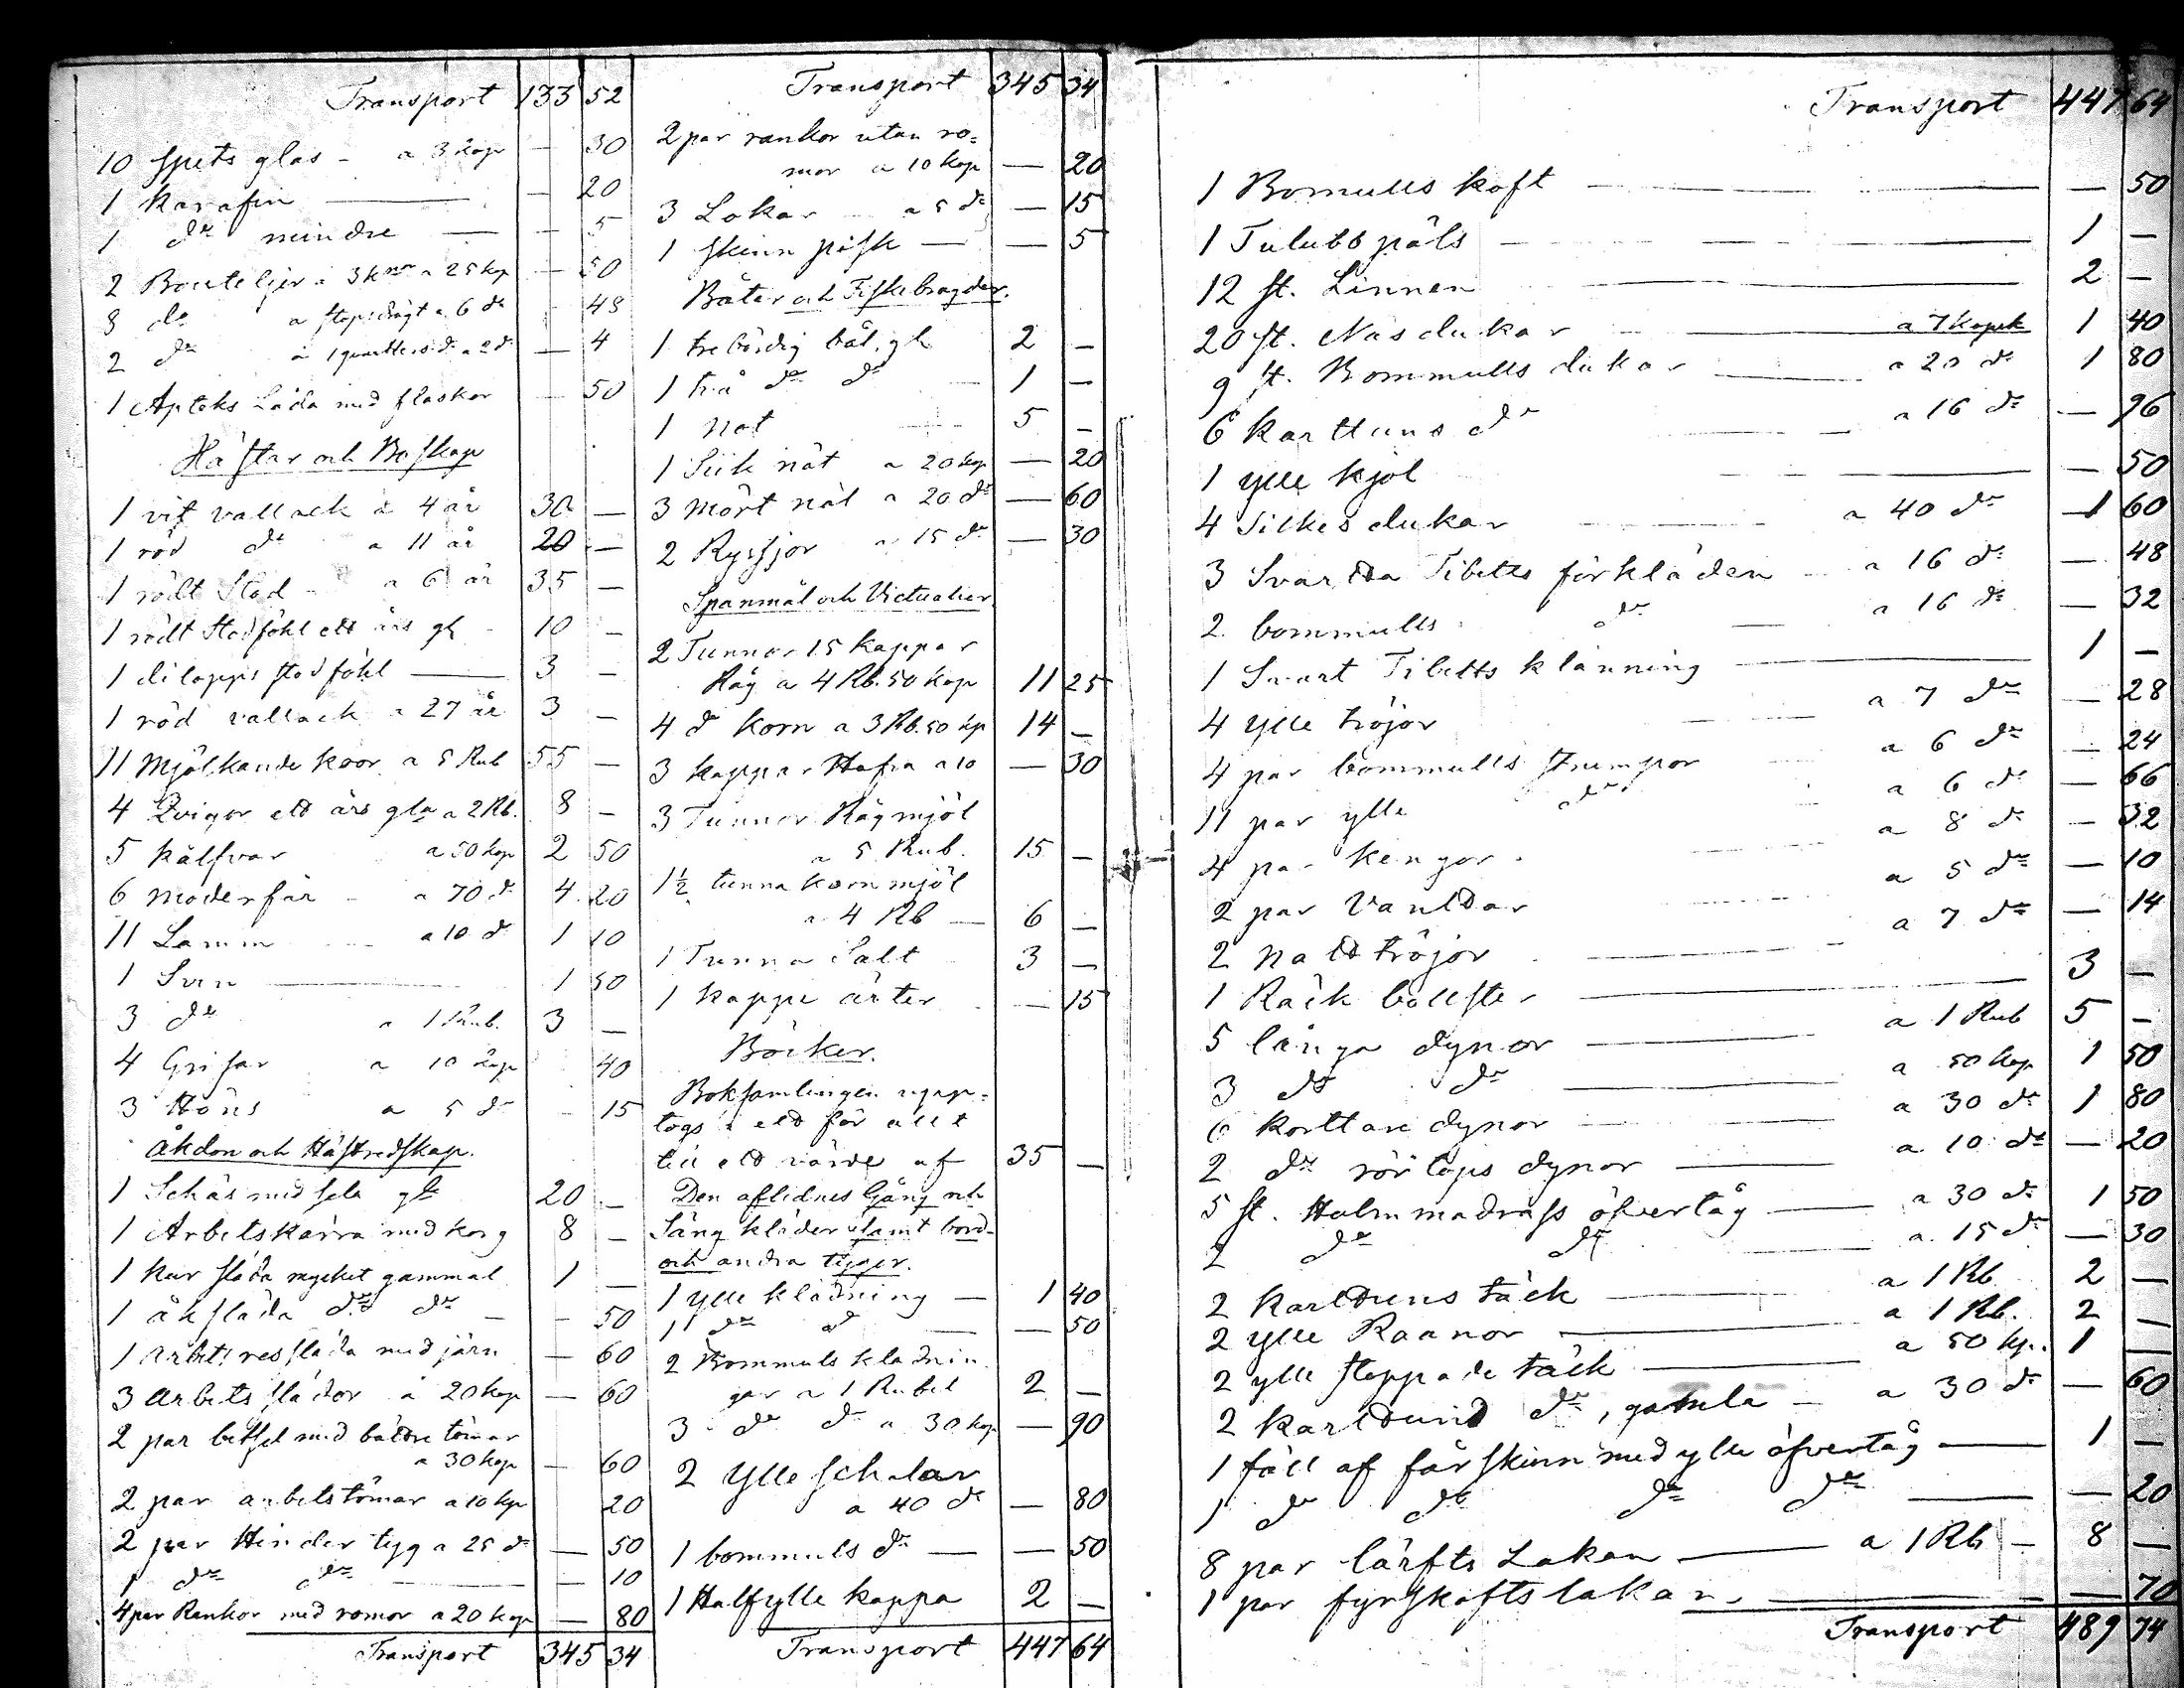 Transport 133 52
10 Spets glas - a 3 kop — 30
1 karafin — 20
1 do mindre — 5
2 Bouteljer a 3 knor a 25 kop — 50
8 do a stops drägt a 6 do - 48
2 do a 1 quarters do a 2 do — 4
1 Apteks Låda med flaskor — 50
Hästar och Boskap
1 vit vallack a 4 år 30 —
1 röd do a 11 år 20 —
1 rödt Stod a 6 år 35 —
1 rödt Stodföhl ett års gl - 10 —
1 dilopps stodföhl — 3 —
1 röd vallack a 27 år 3 —
11 Mjölkande koor a 5 Rub 55 —
4 Qvigor ett års gla a 2 Rb. 8 —
5 kålfvar a 50 kop 2 50
6 moderfår - a 70 do 4 20
11 Lamm a 10 do 1 10
1 Svin — 1 50
3 do a 1 Rub. 3 —
4 Grisar a 10 kop 40
3 Höns a 5 do - 15
Åkdon och Hästredskap.
1 Schäs med sela gl 20 —
1 Arbetskärra med korg 8 —
1 kur släda mycket gammal 1 —
1 åksläda do do — - 50
1 Arbets ressläda med järn — 60
3 Arbets slädor a 20 kop — 60
2 par betsel med bättre tömar
a 30 kop — 60
2 par arbetstömar a 10 kop 20
2 par Hinder tyg a 25 do — 50
1 do do — — 10
4 par Rankor med romor a 20 kop — 80
Transport 345 34
Transport 345 34
2 par rankor utan ro=
mor a 10 kop — 20
3 Lokar a 5 do — 15
1 skinn pisk — — 5
Båtar och Fiskebragder.
1 trebördig båt, gl 2 —
1 två do do 1 —
1 Not 5 —
1 Siik nät a 20 kop — 20
3 mört nät a 20 do — 60
2 Ryssjor a 15 do — 30
Spanmål och Victualier.
2 Tunnor 15 kappar
Råg a 4 Rb. 50 kop 11 25
4 do korn a 3 Rb. 50 kp 14 —
3 kappar Hafra a 10 — 30
3 Tunnor Rågmjöl
a 5 Rub. 15 —
1½ tunna kornmjöl
a 4 Rb — 6 —
1 Tunna Salt 3 —
1 kappe ärter — 15
Böcker.
Boksamlingen upp=
togs i ett för allt
till ett värde af 35 —
Den aflidnes Gång och
Säng kläder samt bord-
och andra tyger.
1 ylle klädning — 1 40
1 do do — — 50
2 Bommuls klädnin
gar a 1 Rubel 2 —
3 do do a 30 kop — 90
2 ylle schalar
a 40 do — 80
1 bommuls do — — 50
1 Halfylle kappa 2 —
Transport 447 64
Transport 447 64
1 Bomulls koft — — 50
1 Tulubbs päls — 1 —
12 st. Linnen — 2 —
20 st. Näsdukar — a 7 kopek 1 40
9 st. Bommulls dukar — a 20 do 1 80
6 karttuns do — a 16 do — 96
1 ylle kjol — — 50
4 Silkes dukar a 40 do 1 60
3 Svartta Tibetts förkläden a 16 do — 48
2 bommulls do — a 16 do — 32
1 Svart Tibetts klänning — 1 —
4 ylle tröjor — a 7 do — 28
4 par bommulls strumpor a 6 do — 24
11 par ylle do a 6 do — 66
4 par kengor a 8 do — 32
2 par Vanttar a 5 do — 10
2 Natt tröjor — a 7 do — 14
1 Räck bollster — 3 —
5 långa dynor — a 1 Rub 5 —
3 do do — a 50 kop 1 50
6 korttare dynor — a 30 do 1 80
2 do rörtops dynor — a 10 do — 20
5 st. Halmmadrass öfvertåg — a 30 do 1 50
2 do do — a 15 do — 30
2 karttuns täck — a 1 Rb 2 —
2 ylle Raanor — a 1 Rb. 2 —
2 ylle stoppade täck — a 50 kp. 1 —
2 karttuns do, gamla — a 30 do — 60
1 fäll af fårskinn med ylle öfvertåg — 1 —
1 do do do do — — 20
8 par lärfts Lakan — a 1 Rb — 8 —
1 par fyrskaftslakan. — — 70
Transport 489 74